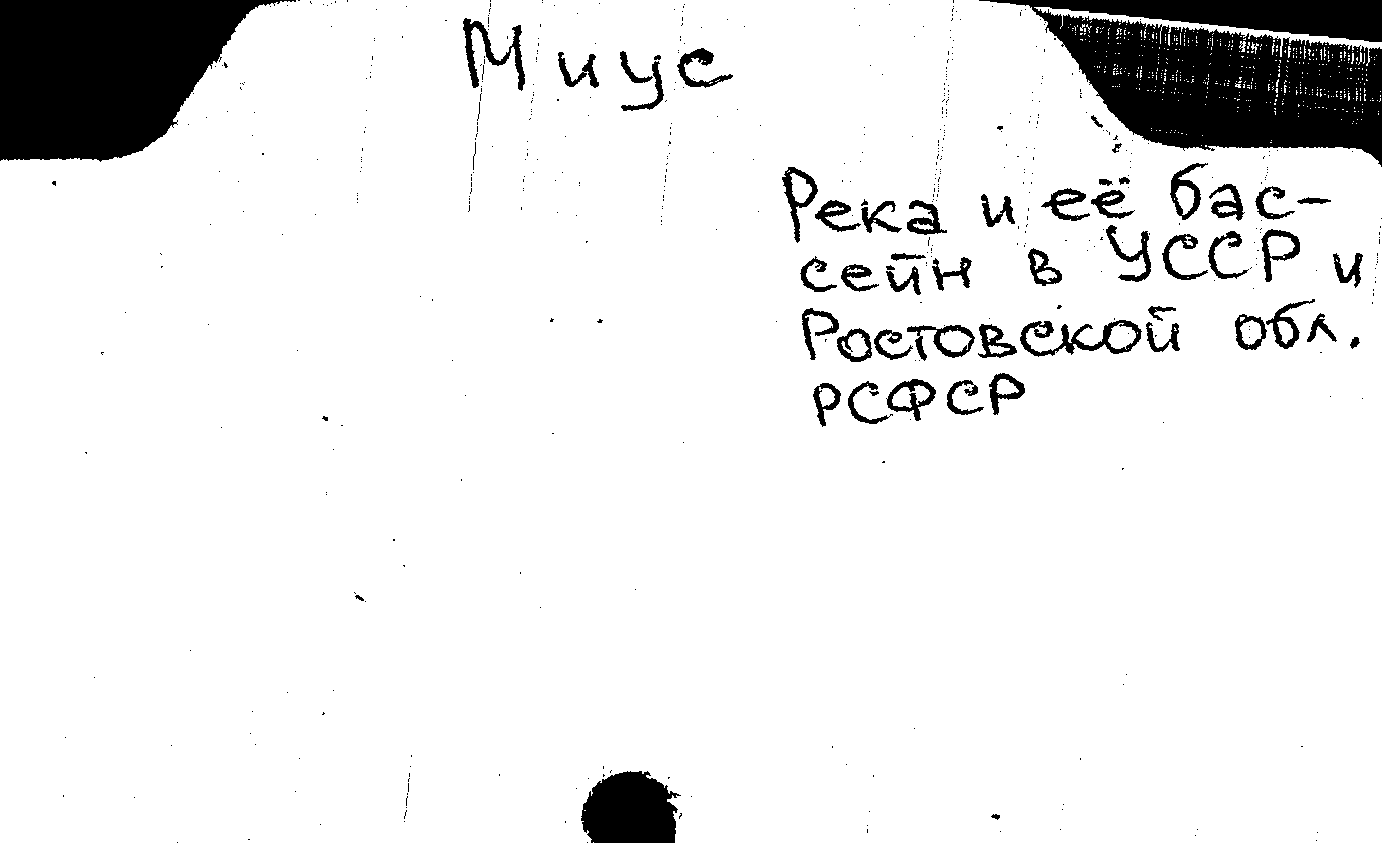 Миус
Река и её бас-
сейн в УССР и
Ростовской обл.
РСФСР